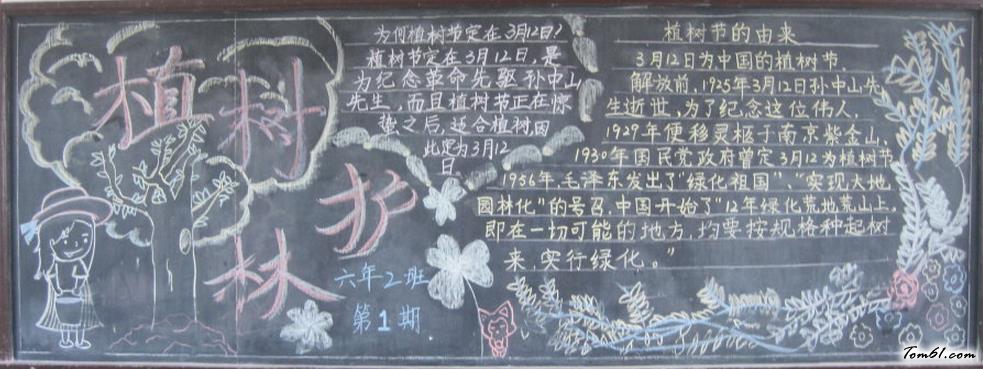 植树
护林
六年2班
第1期
为何植树节定在3月12日?
植树节定在3月12日,是
为纪念革命先驱孙中山
先生,而且植树节正在惊
蛰之后,适合植树,因
此定为3月12
日。
植树节的由来
3月12日为中国的植树节。
解放前,1925年3月12日孙中山先
生逝世,为了纪念这位伟人,
1929年便移灵柩于南京紫金山,
1930年国民党政府曾定3月12为植树节
1956年,毛泽东发出了"绿化祖国"、"实现大地
园林化"的号召,中国开始了"12年绿化荒地荒山上,
即在一切可能的地方,均要按规格种起树
来,实行绿化。"
Tom61.com